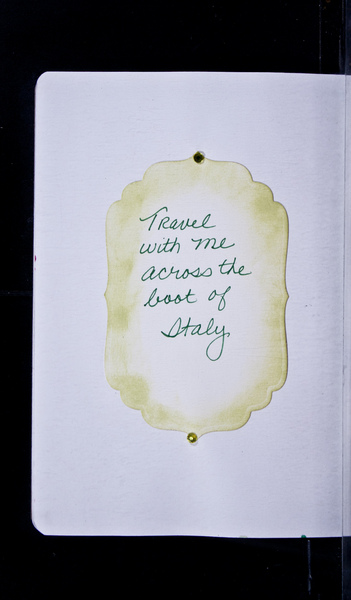 Travel
with me
across the
boot of
Italy